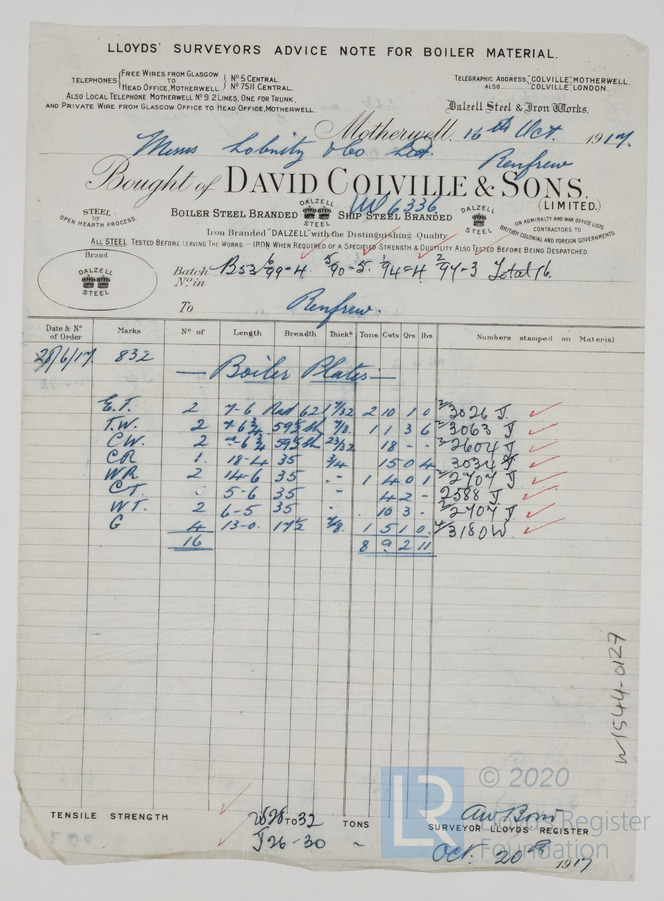 LLOYDS' SURVEYORS ADVICE NOTE FOR BOILER MATERIAL.
TELEPHONES { FREE WIRES FROM GLASGOW TO HEAD OFFICE, MOTHERWELL. } Nº 5 CENTRAL. Nº 7511 CENTRAL.
ALSO LOCAL TELEPHONE MOTHERWELL Nº 9. 2 LINES, ONE FOR TRUNK,
AND PRIVATE WIRE FROM GLASGOW OFFICE TO HEAD OFFICE, MOTHERWELL.
TELEGRAPHIC ADDRESS, "COLVILLE", MOTHERWELL.
ALSO "COLVILLE", LONDON.
Dalzell Steel & Iron Works,
Motherwell, 16th Oct. 1917.
Messrs Lobnitz & Co. Ltd. Renfrew
Bought of DAVID COLVILLE & SONS,
(LIMITED.)
BOILER STEEL BRANDED DALZELL STEEL SHIP STEEL BRANDED DALZELL STEEL
6336
STEEL by OPEN HEARTH PROCESS.
ON ADMIRALTY AND WAR OFFICE LISTS
CONTRACTORS TO
BRITISH COLONIAL AND FOREIGN GOVERNMENTS
Iron Branded "DALZELL" with the Distinguishing Quality
ALL STEEL TESTED BEFORE LEAVING THE WORKS. — IRON WHEN REQUIRED OF A SPECIFIED STRENGTH & DUCTILITY ALSO TESTED BEFORE BEING DESPATCHED.
Brand
DALZELL STEEL
Batch Nº in B53/99-4 5/90-5 1/94-4 2/94-3 Total 16.
To Renfrew.
Date & Nº of Order Marks Nº of Length Breadth Thickˢ Tons Cwts Qrs lbs Numbers stamped on Material
/6/17 832
— Boiler Plates —
E.T. 2 7-6 Rad 62 17/32 2 10 1 0 2/3026 J.
T.W. 2 7-6¾ 59½ Sh 7/8 1 1 3 6 2/3063 J
CW. 2 -6¾ 59½ Sh 23/32 18 - - 2/2604 J
CR 1. 18-4 35 3/4 15 0 4 3034
WR 2 14-6 35 - 1 4 0 1 2/2707 J
CT. 5-6 35 - 4 2 - 2588 J
WT. 2 6-5 35 - 10 3 - 2/2707 J
G 4 13-0. 17½ 7/8. 1 5 1 0 4/3180 W.
16 8 9 2 11
W1544-0127
TENSILE STRENGTH W 28 TO 32 TONS
J 26-30
SURVEYOR LLOYDS' REGISTER
Oct. 20th 1917
LR
© 2020
Lloyd's Register
Foundation